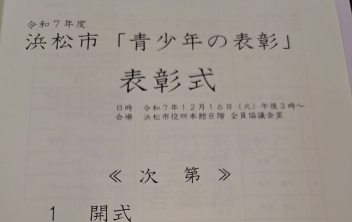 令和７年度
浜松市「青少年の表彰」
表彰式
日時　令和７年１２月１６日（火）午後３時～
会場　浜松市役所本館８階 全員協議会室
≪　次　第　≫
１　開式